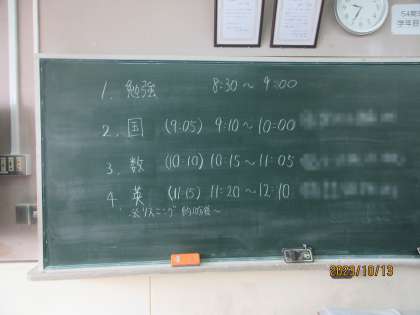 1. 勉強 8:30〜9:00
2. 国 (9:05) 9:10〜10:00
3. 数 (10:10) 10:15〜11:05
4. 英 (11:15) 11:20〜12:10
※リスニング
2023/10/13